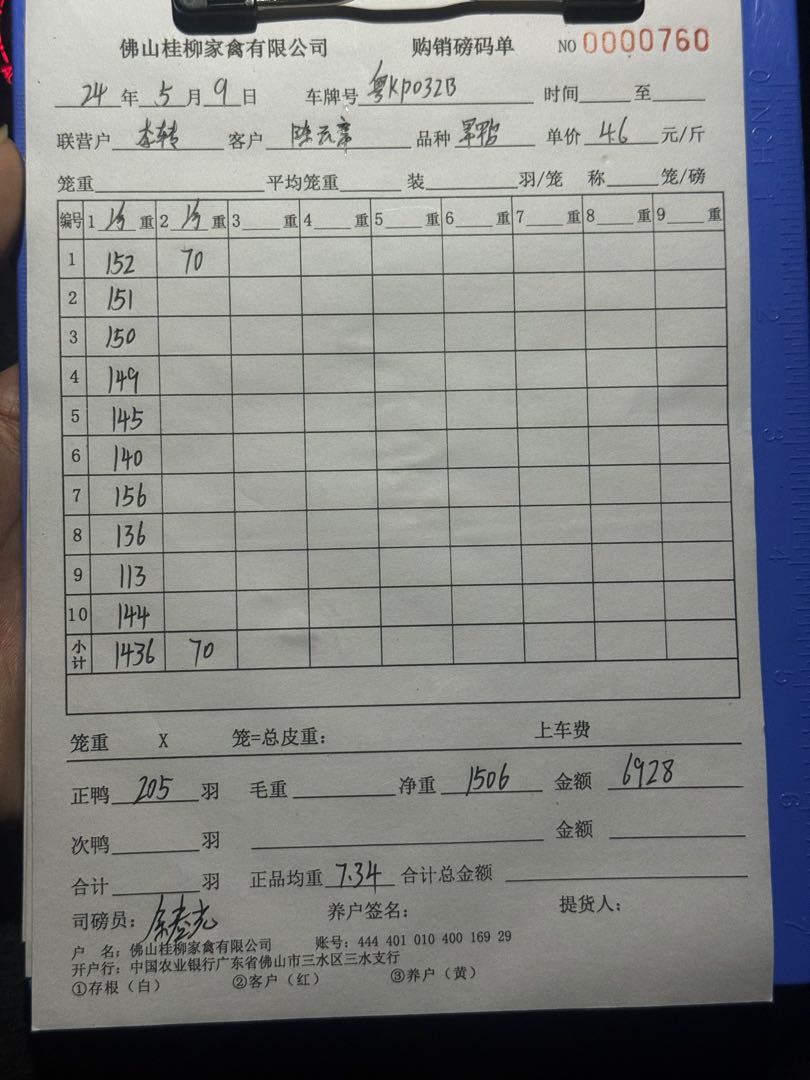 佛山桂柳家禽有限公司 购销磅码单 NO 0000760
24 年 5 月 9 日 车牌号 粤KP032B 时间 至
联营户 李转 客户 陈云章 品种 单价 4.6 元/斤
笼重 平均笼重 装 羽/笼 称 笼/磅
编号 1 重 2 重 3 重 4 重 5 重 6 重 7 重 8 重 9 重
1 152 70
2 151
3 150
4 149
5 145
6 140
7 156
8 136
9 113
10 144
小计 1436 70
笼重 X 笼=总皮重: 上车费
正鸭 205 羽 毛重 净重 1506 金额 6928
次鸭 羽 金额
合计 羽 正品均重 7.34 合计总金额
司磅员: 养户签名: 提货人:
户 名: 佛山桂柳家禽有限公司 账号: 444 401 010 400 169 29
开户行: 中国农业银行广东省佛山市三水区三水支行
①存根(白) ②客户(红) ③养户(黄)
0 INCH
2
3
4
5
6